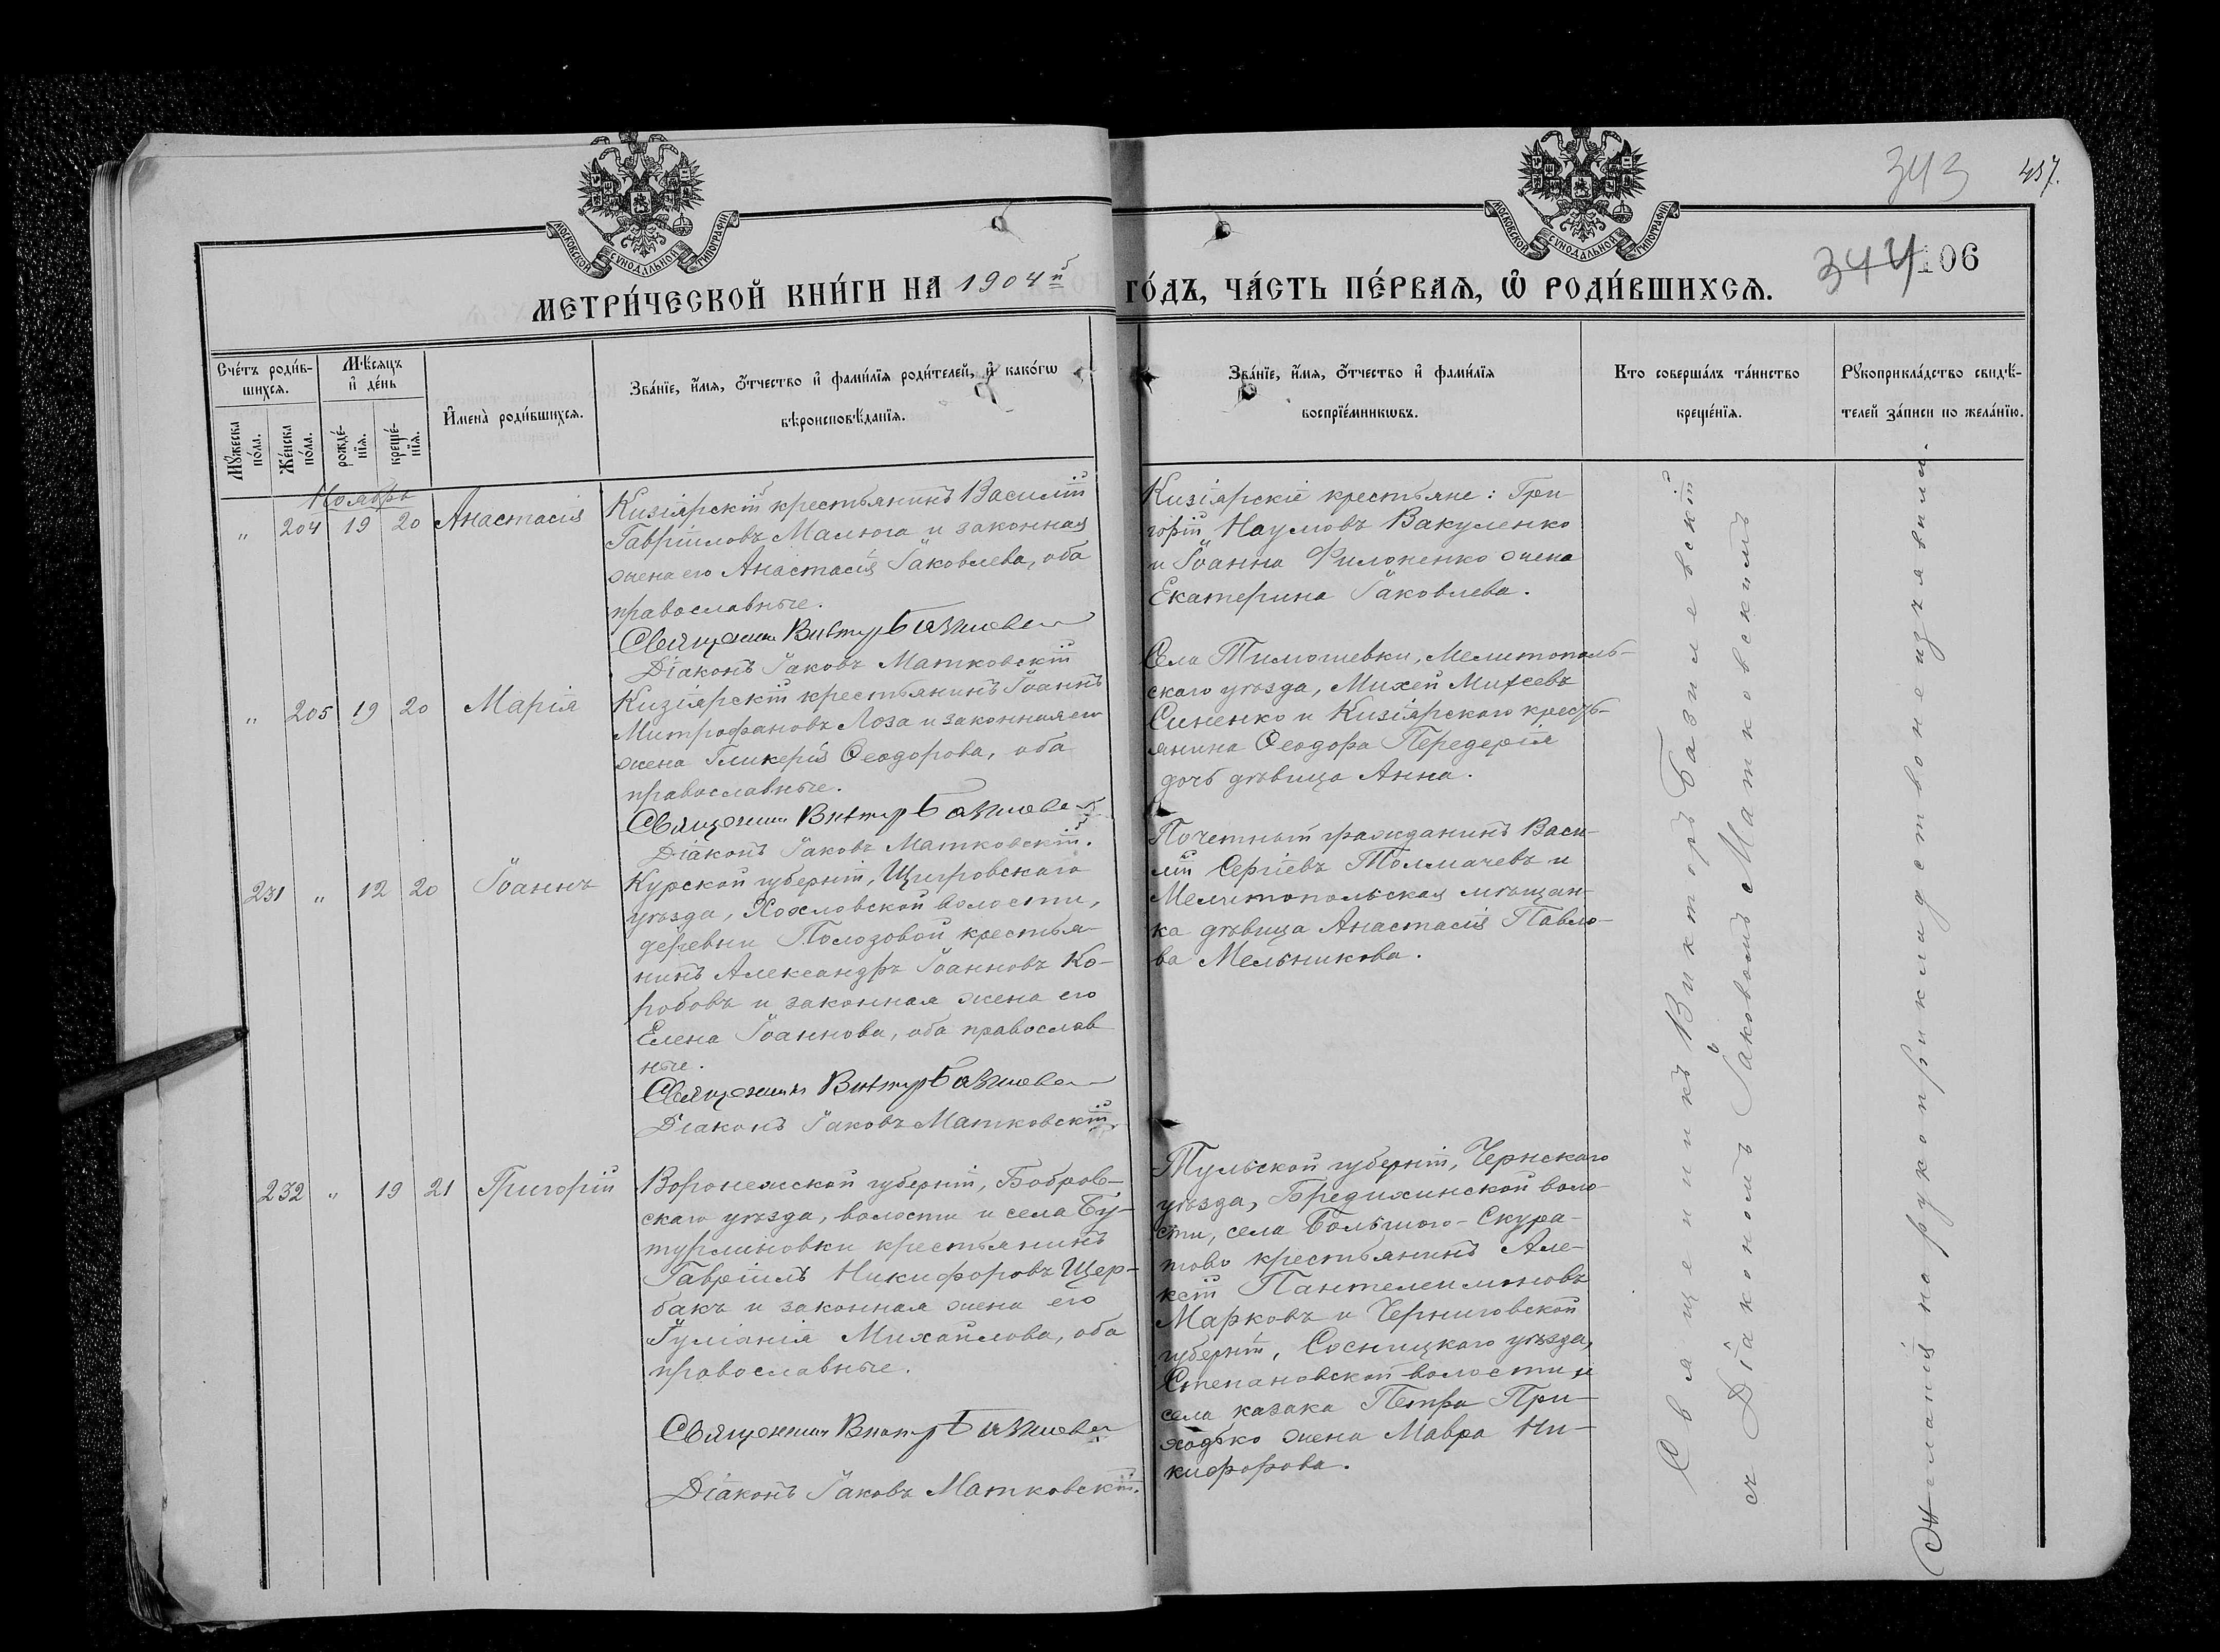 343
457.
344
106
МОСКОВСКОЙ СѴНОДАЛЬНОЙ ТИПОГРАФІИ
МОСКОВСКОЙ СѴНОДАЛЬНОЙ ТИПОГРАФІИ
МЕТРИ́ЧЕСКОЙ КНИ́ГИ НА 1904й
ГО́ДЪ, ЧА́СТЬ ПЕ́РВАѦ, Ѡ҆ РОДИ́ВШИХСѦ.
Сче́тъ роди́в-
шихсѧ.
Мꙋ́жеска по́ла.
Же́нска по́ла.
Мѣ́сѧцъ
и҆ де́нь
рожде́-
нїѧ.
креще́-
нїѧ.
И҆мена̀ роди́вшихсѧ.
Зва́нїе, и҆́мѧ, ѻ҆́тчество и҆ фами́лїѧ роди́телей, и҆ како́гѡ
вѣроисповѣ́данїѧ.
Зва́нїе, и҆́мѧ, ѻ҆́тчество и҆ фами́лїѧ
воспрїе́мникѡвъ.
Кто соверша́лъ та́инство
креще́нїѧ.
Рꙋкоприкла́дство свидѣ́-
телей за́писи по жела́нїю.
Ноябрь
" 204 19 20 Анастасія
Кизіярскій крестьянинъ Василій
Гавріиловъ Малюга и законная
жена его Анастасія Іаковлева, оба
православные.
Священник Виктор Базилевск
Діаконъ Іаковъ Матковскій
Кизіярскіе крестьяне: Гри-
горій Наумовъ Вакуленко
и Іоанна Филоненко жена
Екатерина Іаковлева.
" 205 19 20 Марія
Кизіярскій крестьянинъ Іоаннъ
Митрофановъ Лоза и законная его
жена Гликерія Ѳеодорова, оба
православные.
Священник Виктор Базилевск
Діаконъ Іаковъ Матковскій.
Села Тимошевки, Мелитополь-
скаго уѣзда, Михей Михеевъ
Синенко и Кизіярскаго кресть-
янина Ѳеодора Передерія
дочь дѣвица Анна.
231 " 12 20 Іоаннъ
Курской губерніи, Щигровскаго
уѣзда, Хохловской волости,
деревни Полозовой крестья-
нинъ Александръ Іоанновъ Ко-
робовъ и законная жена его
Елена Іоаннова, оба православ
ные.
Священник Виктор Базилевск
Діаконъ Іаковъ Матковскій.
Почетный гражданинъ Васи-
лій Сергіевъ Толмачевъ и
Мелитопольская мѣщан-
ка дѣвица Анастасія Павло-
ва Мельникова.
232 " 19 21 Григорій
Воронежской губерніи, Бобров-
скаго уѣзда, волости и села Бу-
турлиновки крестьянинъ
Гавріилъ Никифоровъ Щер-
бакъ и законная жена его
Іуліанія Михайлова, оба
православные.
Священник Виктор Базилевск
Діаконъ Іаковъ Матковскій.
Тульской губерніи, Чернскаго
уѣзда, Бредихинской воло-
сти, села Большого-Скура-
тово крестьянинъ Але-
ксій Пантелеимоновъ
Марковъ и Черниговской
губерніи, Сосницкаго уѣзда,
Степановской волости и
села казака Петра При-
ходько жена Мавра Ни-
кифорова.
Священникъ Викторъ Базилевскій
съ Діакономъ Іаковомъ Матковскимъ
Желанія на рукоприкладство не изъявили.